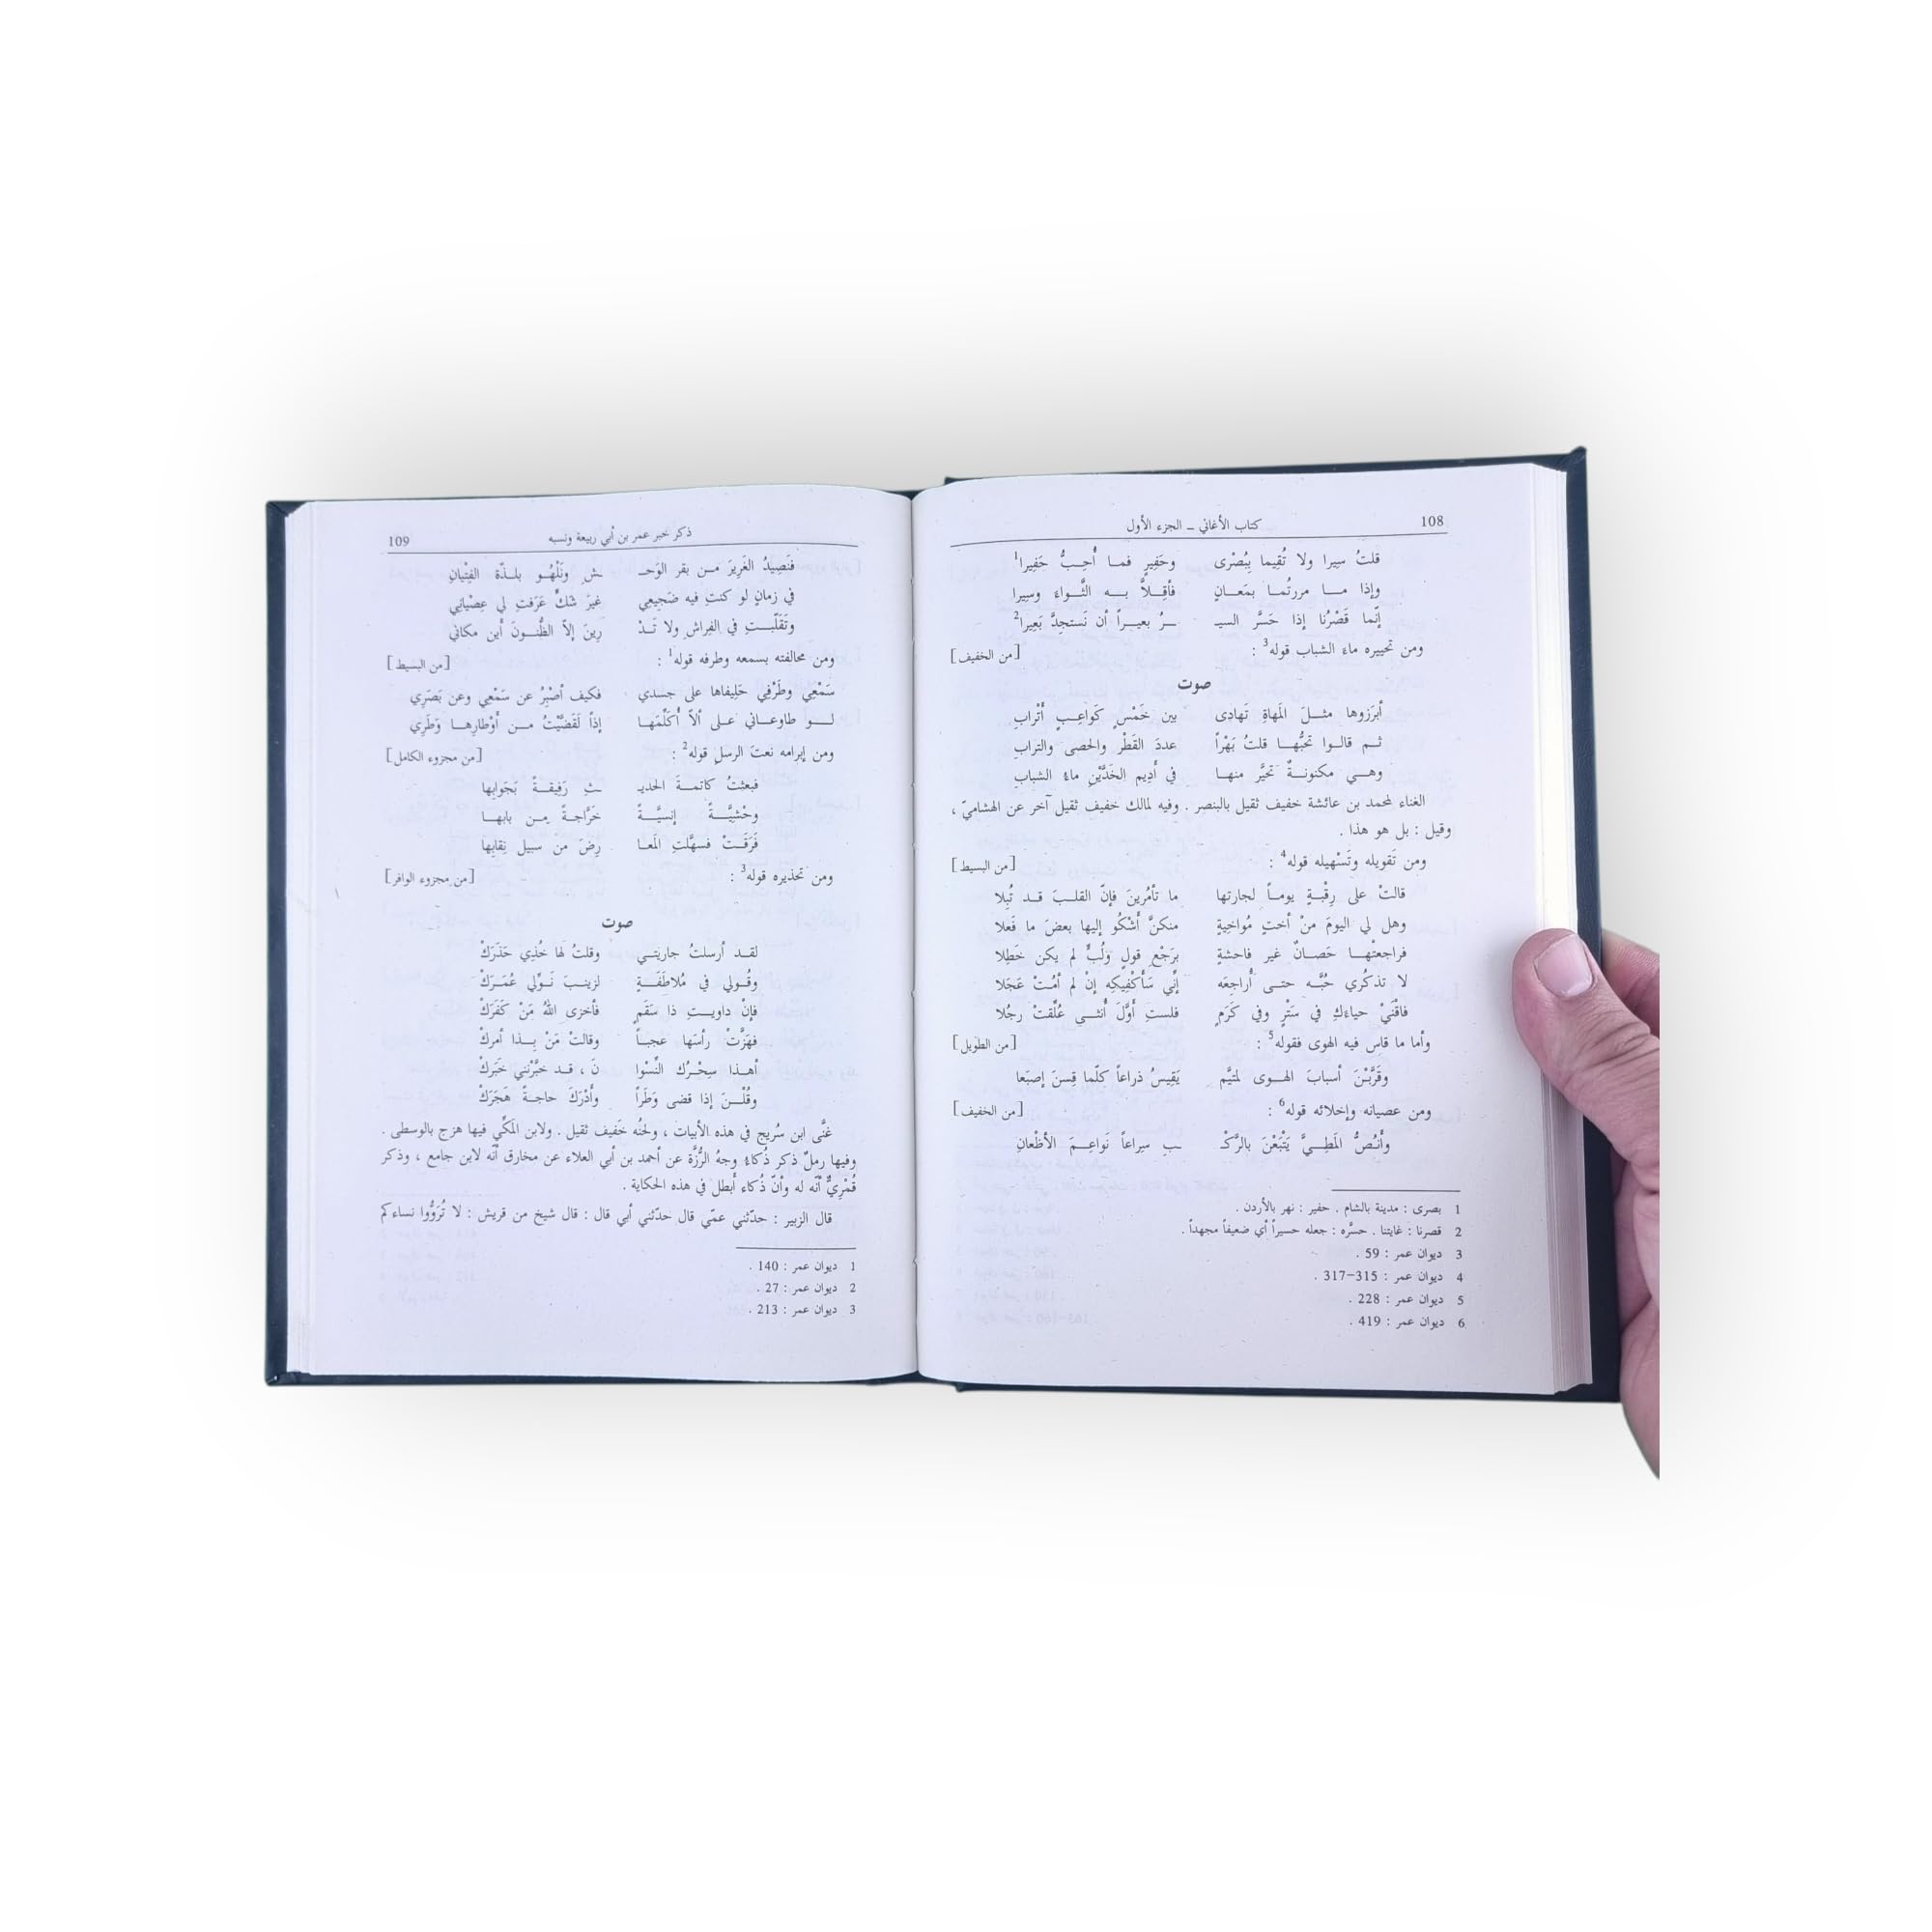 108
كتاب الأغاني ــ الجزء الأول
قلتُ سِيرا ولا تُقِيما بِبُصْرى وحَفِيرٍ فمـا أُحِـبُّ حَفِيرا1
وإذا مـــا مررتُمـا بمَعــانٍ فأقِــلاَّ بــه الثَّــواءَ وسِيرا
إنّما قَصْرُنا إذا حَسَّر السيـ ـــرُ بعيــراً أن نَستجِدَّ بَعِيرا2
ومن تحييره ماء الشباب قوله3 : [من الخفيف]
صوت
أبرَزوها مثــلَ المَهاةِ تَهادى بين خَمْسٍ كَواعِــبٍ أَتْرابِ
ثــم قالــوا تحبُّهــا قلتُ بَهْراً عددَ القَطْر والحصى والتراب
وهــي مكنونــةٌ تحيَّر منهــا في أديم الخَدَّيْنِ ماءُ الشبابِ
الغناء لمحمد بن عائشة خفيف ثقيل بالبنصر . وفيه لمالك خفيف ثقيل آخر عن الهشاميّ ،
وقيل : بل هو هذا .
ومن تَقويله وتَسْهيله قوله4 : [من البسيط]
قالتْ على رِقْبــةٍ يومــاً لجارتها ما تأمُرينَ فإنّ القلــبَ قــد تُبِلا
وهل لي اليومَ مَنْ أختٍ مُواخِيةٍ منكنَّ أَشْكُو إليها بعضَ ما فَعَلا
فراجعتْهــا حَصــانٌ غير فاحشةٍ برَجْعِ قولٍ ولُبٍّ لم يكن خَطِلا
لا تذكُري حُبَّــه حتــى أُراجِعَه إنِّي سَأكْفِيكِه إنْ لم أمُتْ عَجَلا
فاقْنَيْ حياءَكِ في سَتْرٍ وفي كَرَمٍ فلستِ أوَّلَ أُنثــى عُلِّقتْ رجُلا
وأما ما قاس فيه الهوى فقوله5 : [من الطويل]
وقَرَّبْــنَ أسبابَ الهــوى لمتيَّم يَقِيسُ ذراعاً كلّما قِسنَ إصبَعا
ومن عصيانه وإخلائه قوله6 : [من الخفيف]
وأَنُــصُّ المَطِــيَّ يَتْبَعْنَ بالرَّكْـ ـــبِ سِراعاً نَواعِــمَ الأظْعانِ
1 بصرى : مدينة بالشام . حفير : نهر بالأردن .
2 قصرنا : غايتنا . حسَّره : جعله حسيراً أي ضعيفاً مجهداً .
3 ديوان عمر : 59 .
4 ديوان عمر : 315–317 .
5 ديوان عمر : 228 .
6 ديوان عمر : 419 .
ذكر خبر عمر بن أبي ربيعة ونسبه
109
فنَصِيدُ الغَرِيرَ مــن بقر الوَحــ ـــش ونَلْهُــو بلــذّة الفِتْيانِ
في زمانٍ لو كنتِ فيه ضَجيعِي غيرَ شَكٍّ عَرَفتِ لي عِصْيانِي
وتَقَلّبــتِ في الفِراش ولا تَــدْ رِينَ إلاّ الظُّنــونَ أين مكاني
ومن مخالفته بسمعه وطرفه قوله1 : [من البسيط]
سَمْعِي وطَرْفِي حَلِيفاها على جسدي فكيف أصْبِرُ عن سَمْعِي وعن بَصَرِي
لــو طاوعــاني علــى ألاَّ أُكَلِّمَهــا إذاً لَقَضَّيْتُ مــن أَوْطارِهــا وَطَرِي
ومن إبرامه نعتَ الرسلِ قوله2 : [من مجزوء الكامل]
فبعثتُ كاتمــةَ الحديـ ــثِ رَفِيقــةً بَجَوابِها
وحْشيَّــةً إنسيَّــةً خَرَّاجــةً مِــن بابهــا
فَرَقَــتْ فسهَّلتِ المَعــا رِضَ من سبيل نِقابِها
ومن تحذيره قوله3 : [من مجزوء الوافر]
صوت
لقــد أرسلتُ جاريتــي وقلتُ لها خُذِي حَذَرَكْ
وقُــولي في مُلاطَفَــةٍ لزينــبَ نَــوِّلي عُمَــرَكْ
فإنْ داويــتِ ذا سَقَمٍ فأخزى اللهُ مَنْ كَفَرَكْ
فهَزَّتْ رأسَها عجبــاً وقالتْ مَنْ بِــذا أمركْ
أهــذا سِحْــرُك النِّسْوا نَ ، قــد خبَّرْنني خَبَرَكْ
وقُلْــنَ إذا قضى وَطَراً وأَدْرَكَ حاجــةً هَجَرَكْ
غنَّى ابن سُريج في هذه الأبيات ، ولحنُه خفيف ثقيل . ولابن المَكِّي فيها هزج بالوسطى .
وفيها رملٌ ذكر ذُكاءُ وجهُ الرُّزَّة عن أحمد بن أبي العلاء عن مخارق أنّه لابن جامع ، وذكر
قُمْرِيٌّ أنّه له وأنّ ذُكاء أبطل في هذه الحكاية .
قال الزبير : حدّثني عمّي قال حدّثني أبي قال : قال شيخ من قريش : لا تُرَوُّوا نساءكم
1 ديوان عمر : 140 .
2 ديوان عمر : 27 .
3 ديوان عمر : 213 .